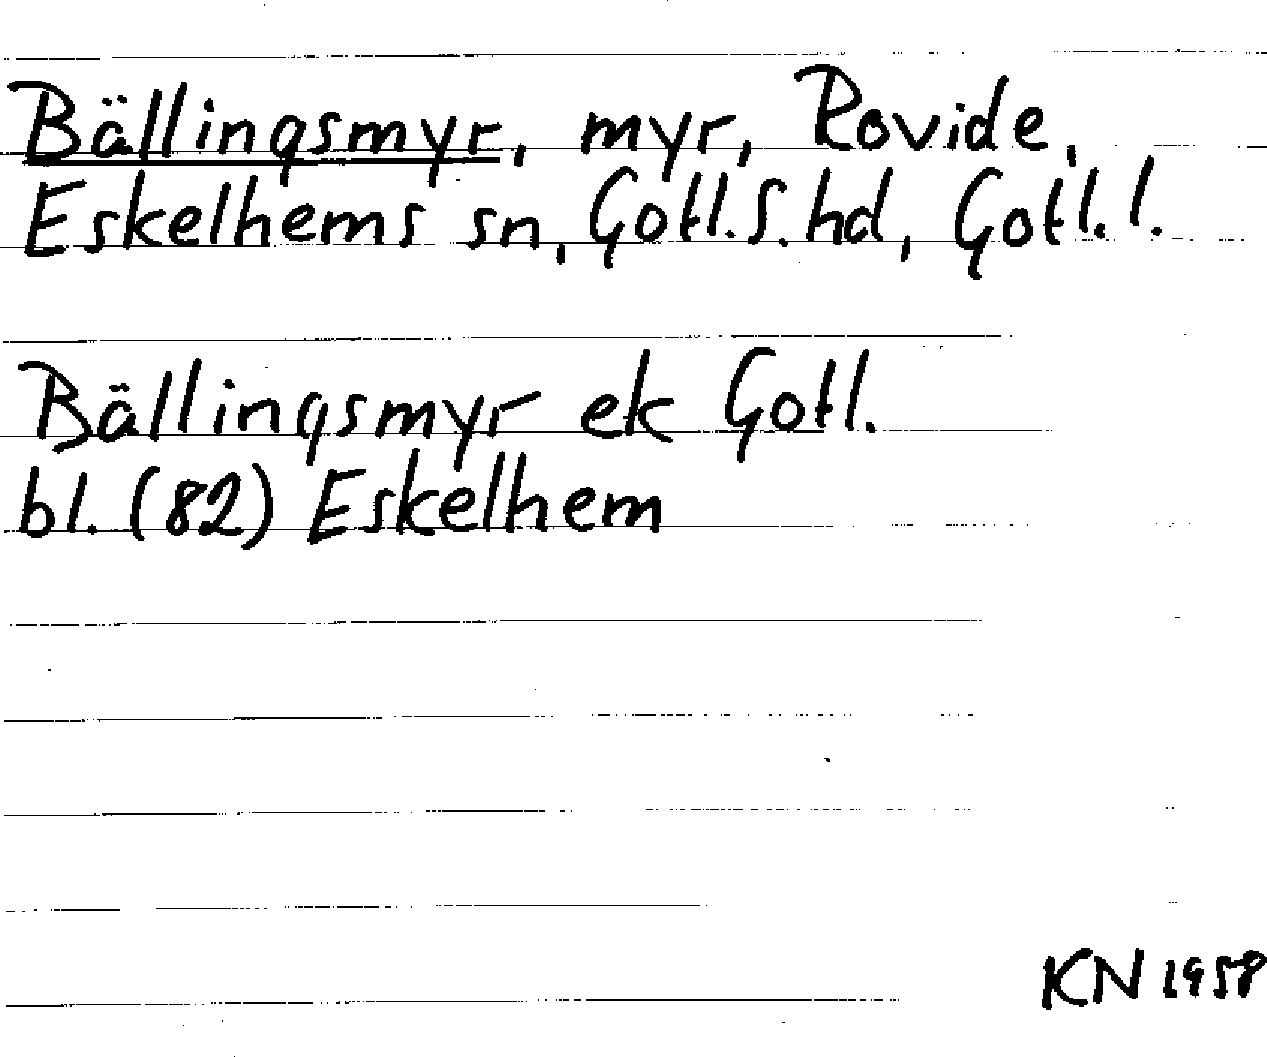 Bällingsmyr, myr, Rovide,
Eskelhems sn, Gotl.S.hd, Gotl. l.
Bällingsmyr ek Gotl.
bl. (82) Eskelhem
KN 1958